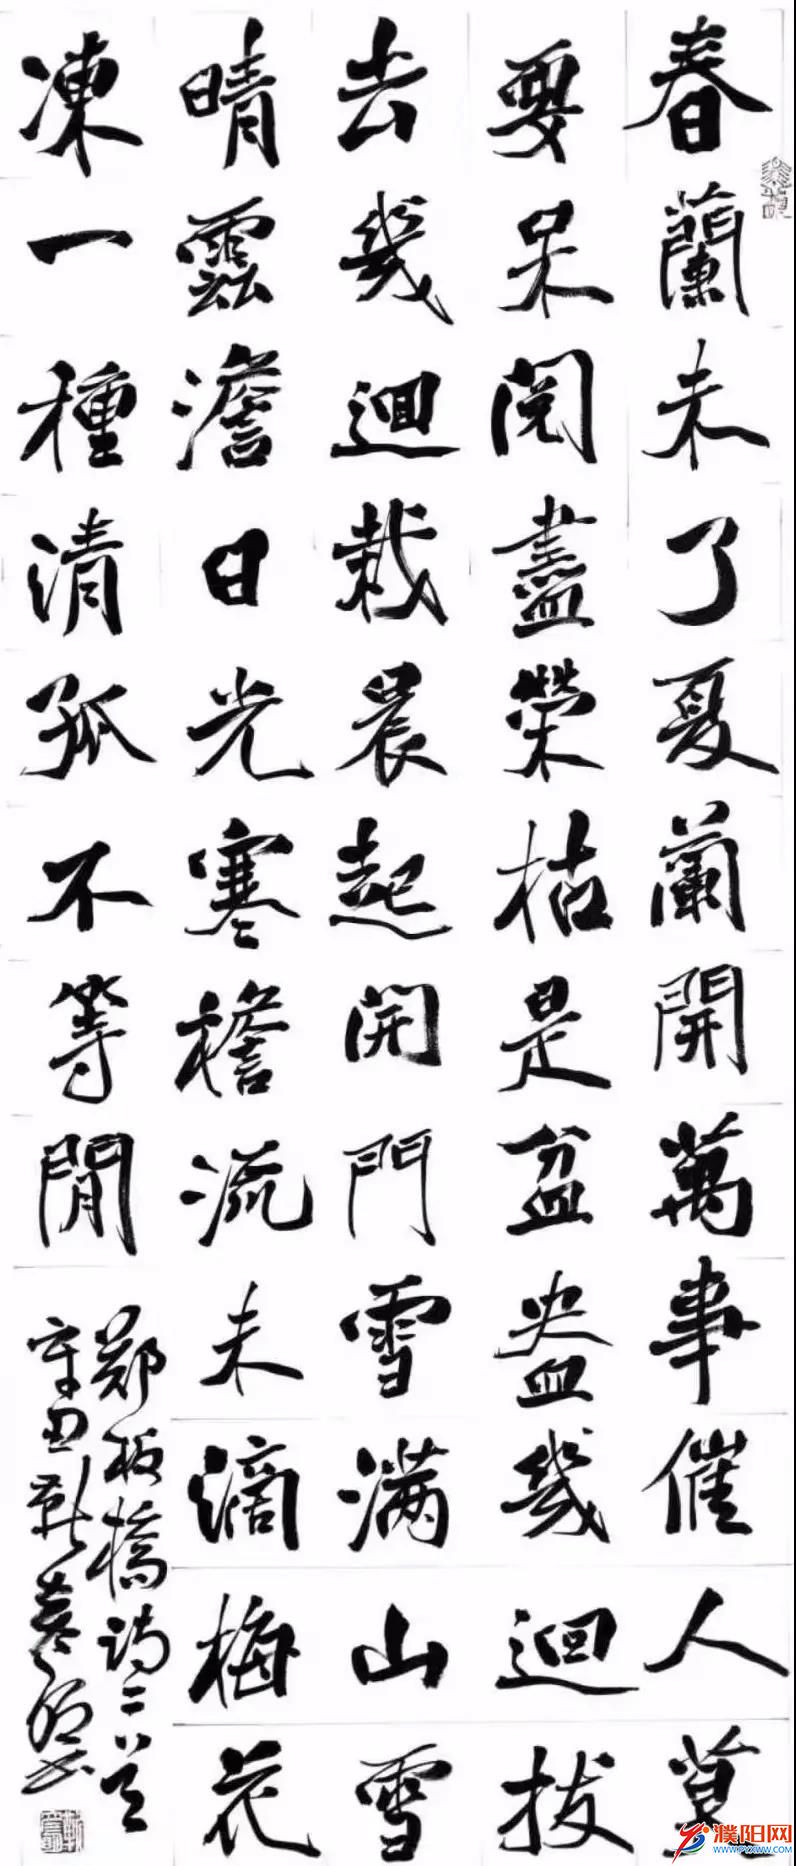 春蘭未了夏蘭開萬事催人莫
要呆閱盡榮枯是盆盎幾迴拔
去幾迴栽晨起開門雪满山雪
晴雲澹日光寒檐流未滴梅花
凍一種清孤不等閒
鄭板橋詩二首
辛丑靳
濮阳网
WWW.PYXWW.COM